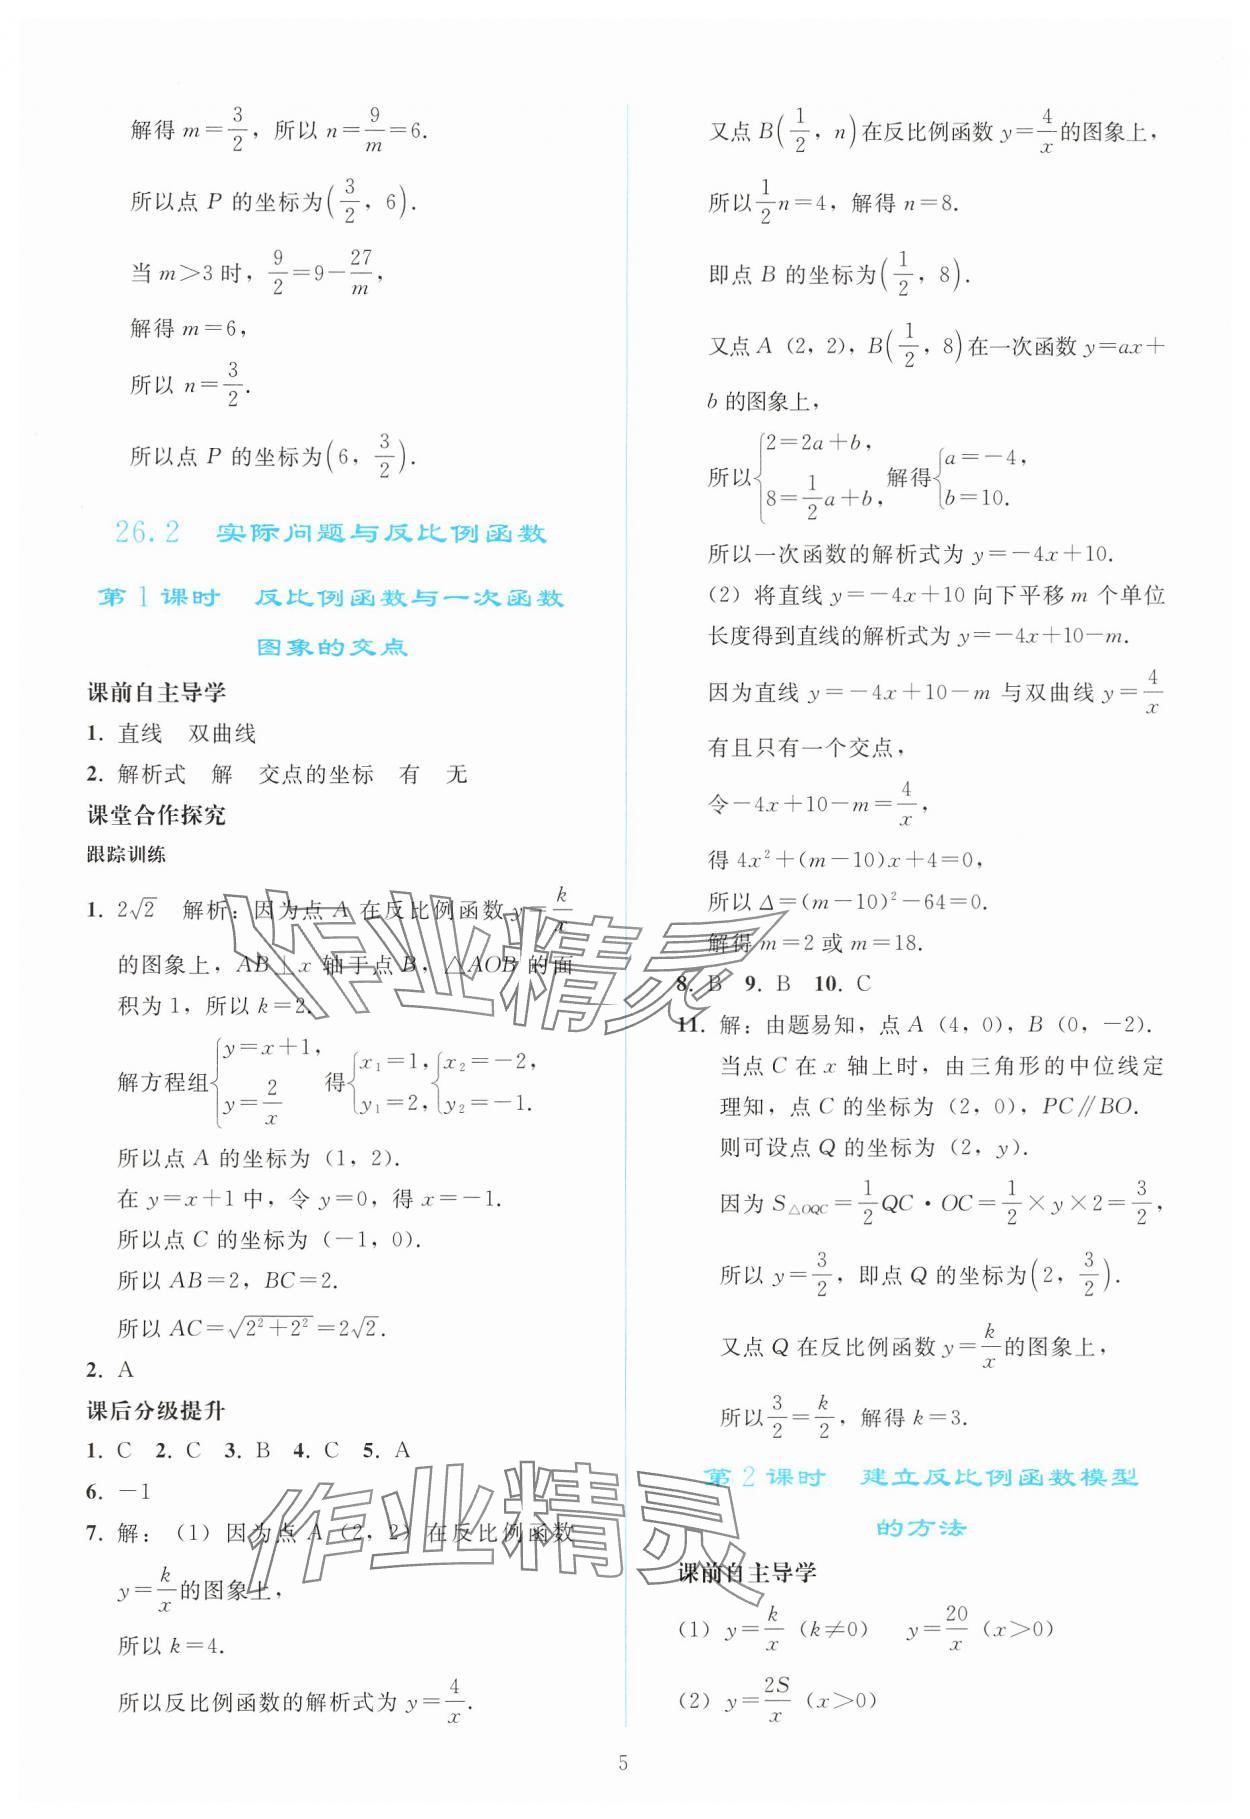 解得 m=3/2，所以 n=9/m=6.
所以点 P 的坐标为(3/2，6).
当 m>3 时，9/2=9-27/m，
解得 m=6，
所以 n=3/2.
所以点 P 的坐标为(6，3/2).
26.2 实际问题与反比例函数
第 1 课时 反比例函数与一次函数
图象的交点
课前自主导学
1. 直线 双曲线
2. 解析式 解 交点的坐标 有 无
课堂合作探究
跟踪训练
1. 2√2 解析：因为点 A 在反比例函数 y=k/x
的图象上，AB⊥x 轴于点 B，△AOB 的面
积为 1，所以 k=2.
解方程组{y=x+1，y=2/x 得{x₁=1，y₁=2，{x₂=-2，y₂=-1.
所以点 A 的坐标为（1，2）.
在 y=x+1 中，令 y=0，得 x=-1.
所以点 C 的坐标为（-1，0）.
所以 AB=2，BC=2.
所以 AC=√(2²+2²)=2√2.
2. A
课后分级提升
1. C 2. C 3. B 4. C 5. A
6. -1
7. 解：（1）因为点 A（2，2）在反比例函数
y=k/x的图象上，
所以 k=4.
所以反比例函数的解析式为 y=4/x.
又点 B(1/2，n)在反比例函数 y=4/x的图象上，
所以1/2n=4，解得 n=8.
即点 B 的坐标为(1/2，8).
又点 A（2，2），B(1/2，8)在一次函数 y=ax+
b 的图象上，
所以{2=2a+b，8=1/2a+b，解得{a=-4，b=10.
所以一次函数的解析式为 y=-4x+10.
（2）将直线 y=-4x+10 向下平移 m 个单位
长度得到直线的解析式为 y=-4x+10-m.
因为直线 y=-4x+10-m 与双曲线 y=4/x
有且只有一个交点，
令-4x+10-m=4/x，
得 4x²+(m-10)x+4=0，
所以 Δ=(m-10)²-64=0.
解得 m=2 或 m=18.
8. B 9. B 10. C
11. 解：由题易知，点 A（4，0），B（0，-2）.
当点 C 在 x 轴上时，由三角形的中位线定
理知，点 C 的坐标为（2，0），PC∥BO.
则可设点 Q 的坐标为（2，y）.
因为 S△OQC=1/2QC·OC=1/2×y×2=3/2，
所以 y=3/2，即点 Q 的坐标为(2，3/2).
又点 Q 在反比例函数 y=k/x的图象上，
所以3/2=k/2，解得 k=3.
第 2 课时 建立反比例函数模型
的方法
课前自主导学
（1）y=k/x（k≠0） y=20/x（x>0）
（2）y=2S/x（x>0）
5
作业精灵
作业精灵